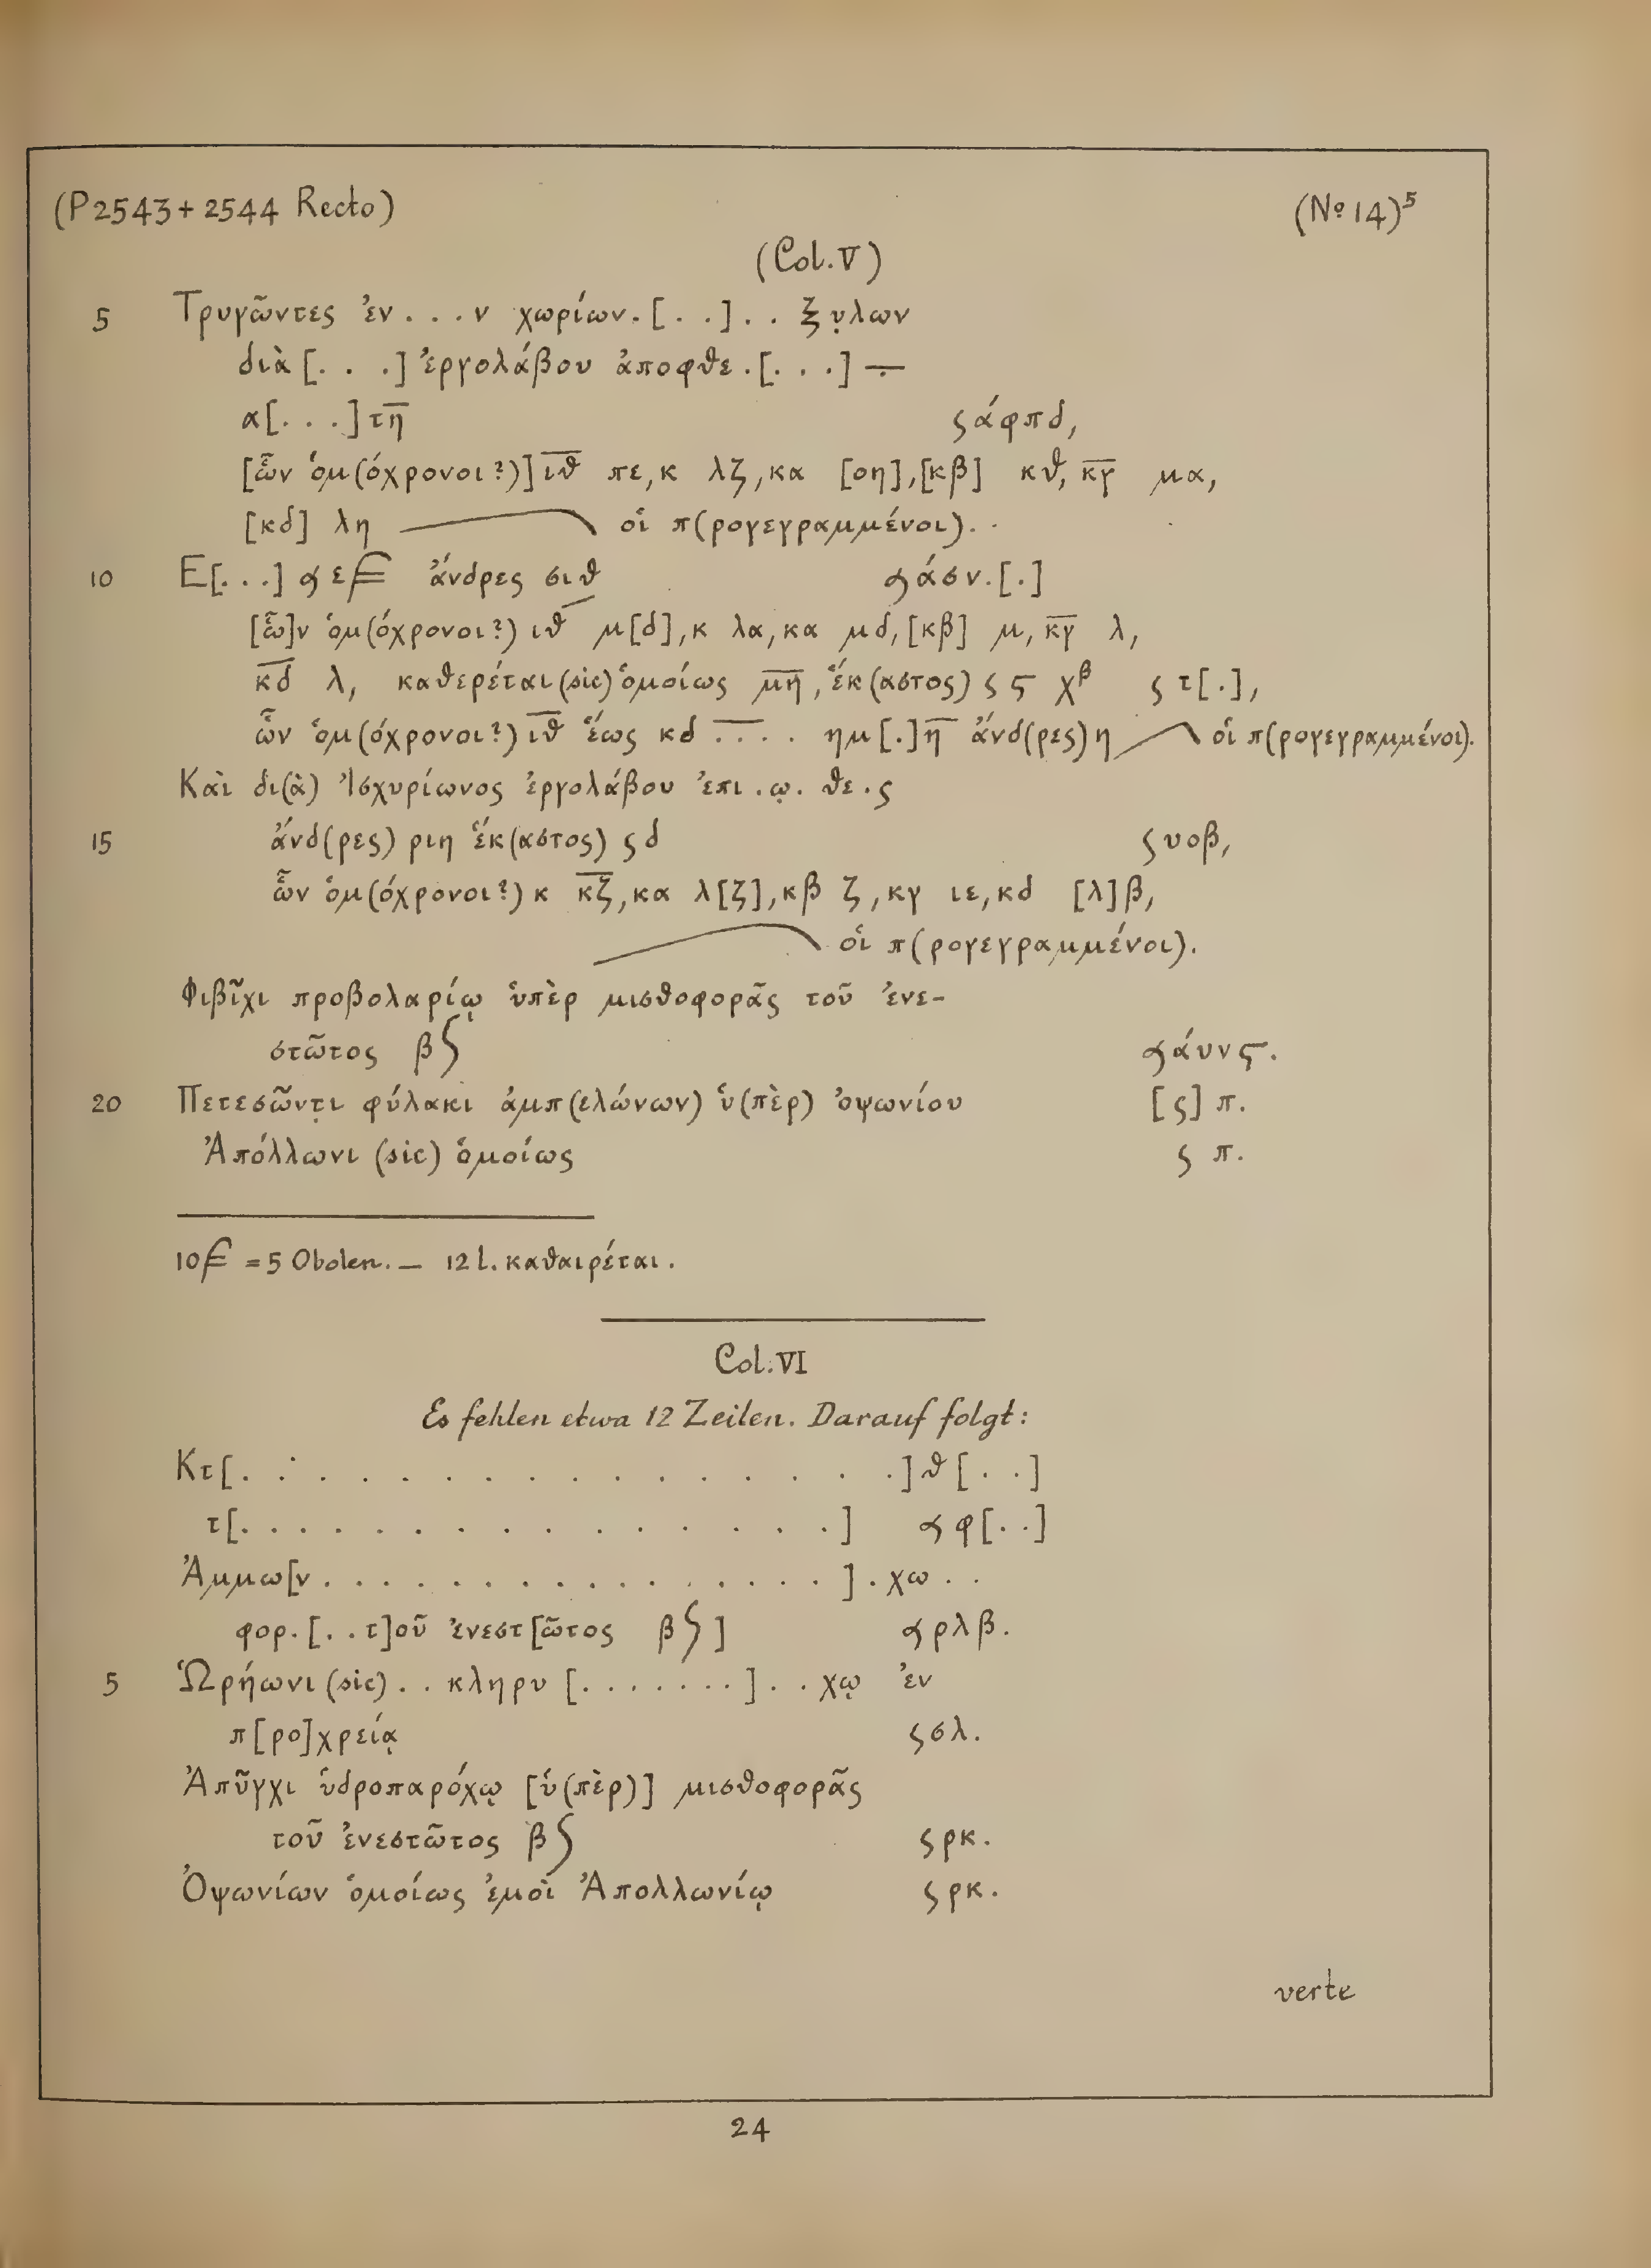 (P 2543 + 2544 Recto) (No 14)⁵
(Col. V)
5 Τρυγῶντες ἐν . . . ν χωρίων . [ . . ] . . ξυ̣λων
διὰ [ . . . ] ἐργολάβου ἀποφθε . [ . . . ] ÷
α[ . . . ] τη̅ ϛ ά φπδ,
[ὧν ὁμ(όχρονοι?)] ι̅θ̅ πε, κ λζ, κα [οη], [κβ] κθ, κ̅γ̅ μα,
[κδ] λη οἱ π(ρογεγραμμένοι).
10 Ε[ . . . ] ε ἄνδρες σιθ ά σν . [ . ]
[ὧ]ν ὁμ(όχρονοι?) ιθ̅ μ[δ], κ λα, κα μδ, [κβ] μ, κ̅γ̅ λ,
κ̅δ̅ λ, καθερέται (sic) ὁμοίως μ̅η̅, ἕκ(αστος) ϛ ϛ χᵝ ϛ τ[ . ],
ὧν ὁμ(όχρονοι?) ι̅θ̅ ἕως κδ . . . . ημ [ . ] η̅ ἄνδ(ρες) η οἱ π(ρογεγραμμένοι).
Καὶ δι(ὰ) Ἰσχυρίωνος ἐργολάβου ἐπι . ω̣ . θε . ς
15 ἄνδ(ρες) ριη ἕκ(αστος) ϛ δ ϛ υοβ,
ὧν ὁμ(όχρονοι?) κ κ̅ζ̅, κα λ[ζ], κβ ζ, κγ ιε, κδ [λ]β,
οἱ π(ρογεγραμμένοι).
Φιβῖχι προβολαρίῳ ὑπὲρ μισθοφορᾶς τοῦ ἐνε-
στῶτος β ʃ ά υνϛ.
20 Πετεσῶντ̣ι φύλακι ἀμπ(ελώνων) ὑ(πὲρ) ὀψωνίου [ϛ] π.
Ἀπόλλωνι (sic) ὁμοίως ϛ π.
10 = 5 Obolen. — 12 l. καθαιρέται.
Col. VI
Es fehlen etwa 12 Zeilen. Darauf folgt:
Κτ[ . . . . . . . . . . . . . . . . ] θ [ . . ]
τ[ . . . . . . . . . . . . . . . ] φ[ . . ]
Ἀμμω[ν . . . . . . . . . . . . . ] . χω . .
φορ . [ . . τ]οῦ ἐνεστ[ῶτος β ʃ ] ρλβ.
5 Ὡρήωνι (sic) . . κληρυ [ . . . . . . . ] . . χῳ ἐν
π[ρο]χρείᾳ ϛ σλ.
Ἀπῦγχι ὑδροπαρόχῳ [ὑ(πὲρ)] μισθοφορᾶς
τοῦ ἐνεστῶτος β ʃ ϛ ρκ.
Ὀψωνίων ὁμοίως ἐμοὶ Ἀπολλωνίῳ ϛ ρκ.
verte
24